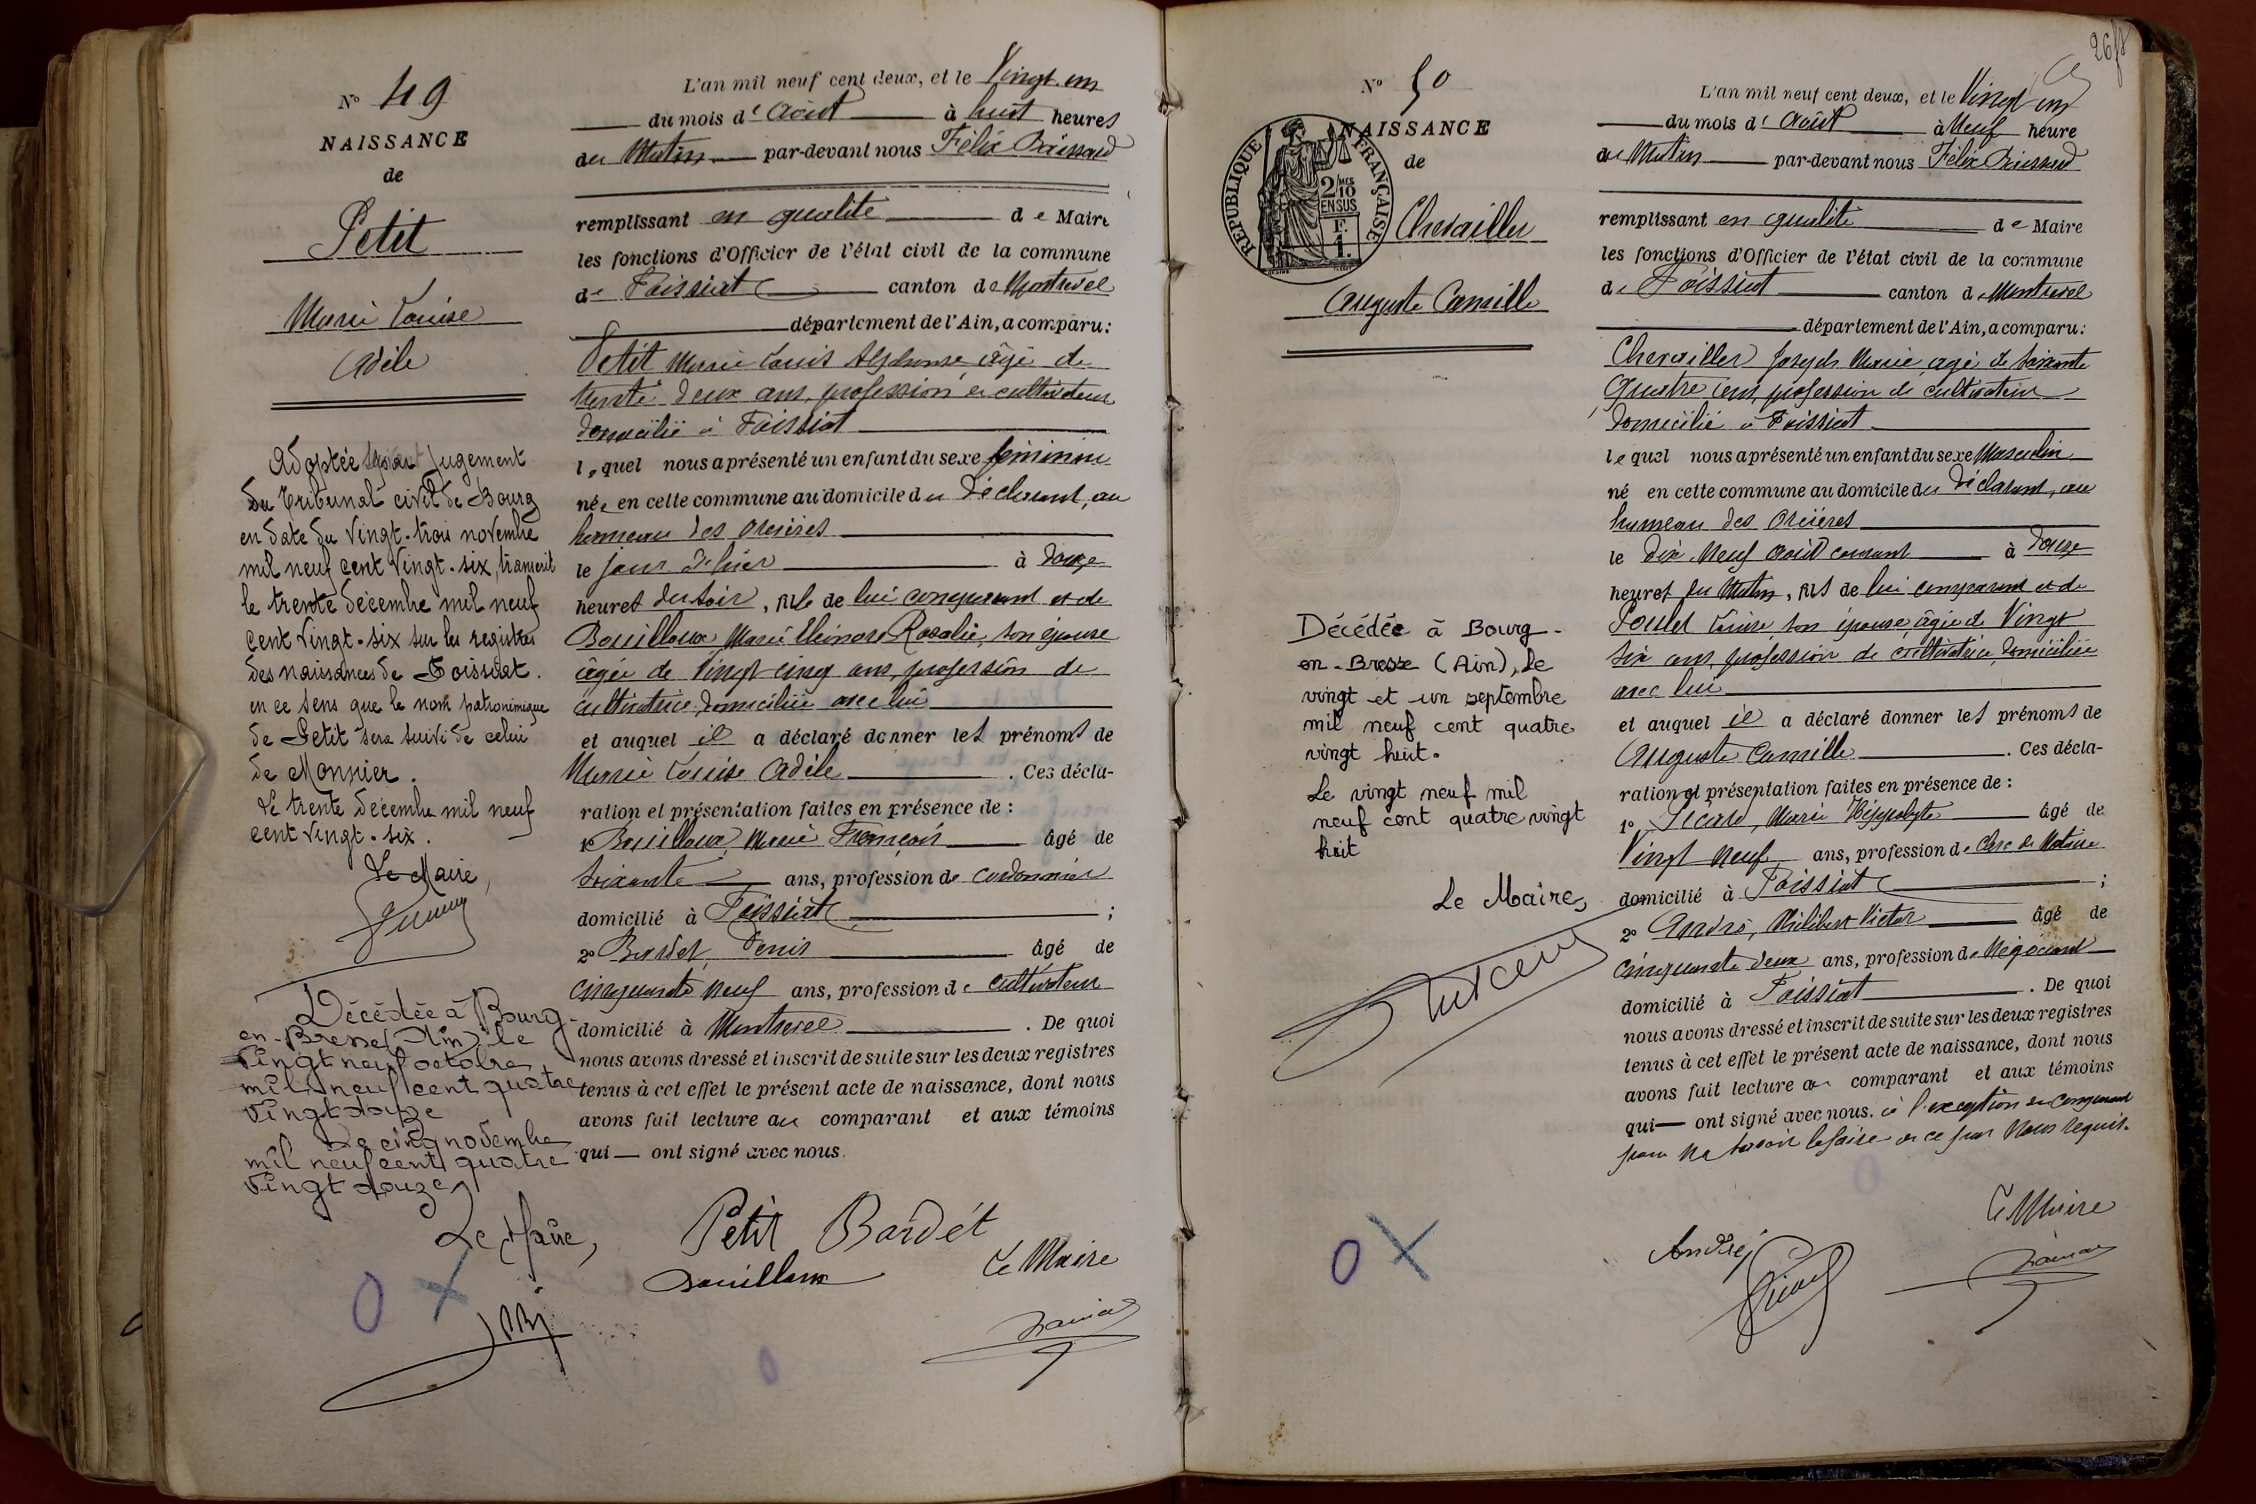 N° 49
NAISSANCE
de
Petit
Marie Louise
Adèle
Adoptée suivant jugement
du Tribunal civil de Bourg
en date du vingt-trois novembre
mil neuf cent vingt-six, transcrit
le trente décembre mil neuf
cent vingt-six sur les registres
des naissances de Foissiat.
en ce sens que le nom patronimique
de Petit sera suivi de celui
de Monnier.
Le trente décembre mil neuf
cent vingt-six.
Le Maire,
Décédée à Bourg-
en-Bresse (Ain) le
vingt neuf octobre
mil neuf cent quatre
vingt douze
Le cinq novembre
mil neuf cent quatre
vingt douze
Le Maire,
L'an mil neuf cent deux, et le Vingt un
du mois d'Août à huit heures
du Matin par-devant nous Félix
remplissant en qualité de Maire
les fonctions d'Officier de l'état civil de la commune
de Foissiat canton de Montrevel
département de l'Ain, a comparu:
Petit Marie Louis Alphonse âgé de
trente deux ans, profession de cultivateur
domicilié à Foissiat
lequel nous a présenté un enfant du sexe féminin
née en cette commune au domicile du déclarant, au
hameau des
le jour d'hier à douze
heures du soir, fille de lui comparant et de
Bouilloux Marie Eléinore Rosalie, son épouse
âgée de vingt-cinq ans, profession de
cultivatrice, domiciliée avec lui
et auquel il a déclaré donner les prénoms de
Marie Louise Adèle. Ces décla-
ration et présentation faites en présence de :
1° Bouilloux, Marie François âgé de
soixante ans, profession de cordonnier
domicilié à Foissiat ;
2° Denis âgé de
cinquante neuf ans, profession de cultivateur
domicilié à Montrevel. De quoi
nous avons dressé et inscrit de suite sur les deux registres
tenus à cet effet le présent acte de naissance, dont nous
avons fait lecture au comparant et aux témoins
qui — ont signé avec nous.
Petit Bardet
Bouilloux Le Maire
N° 50
NAISSANCE
de
REPUBLIQUE FRANÇAISE
2/10 EN SUS
F. 1.
Chevailler
Auguste Camille
Décédée à Bourg-
en-Bresse (Ain), le
vingt et un septembre
mil neuf cent quatre
vingt huit.
Le vingt neuf mil
neuf cent quatre vingt
huit
Le Maire,
L'an mil neuf cent deux, et le Vingt un
du mois d'Août à Neuf heure
du Matin par-devant nous Félix
remplissant en qualité de Maire
les fonctions d'Officier de l'état civil de la commune
de Foissiat canton de Montrevel
département de l'Ain, a comparu:
Chevailler Joseph Marie âgé de soixante
quatre ans, profession de cultivateur
domicilié à Foissiat
lequel nous a présenté un enfant du sexe Masculin
né en cette commune au domicile du déclarant, au
hameau des
le dix neuf août courant à douze
heures du Matin, fils de lui comparant et de
Poulet Louise son épouse âgée de vingt
six ans, profession de cultivatrice, domiciliée
avec lui
et auquel il a déclaré donner les prénoms de
Auguste Camille. Ces décla-
ration et présentation faites en présence de :
1° Marie Hippolyte âgé de
vingt neuf ans, profession de clerc de Notaire
domicilié à Foissiat ;
2° André, Philibert Victor âgé de
cinquante deux ans, profession de Négociant
domicilié à Foissiat. De quoi
nous avons dressé et inscrit de suite sur les deux registres
tenus à cet effet le présent acte de naissance, dont nous
avons fait lecture au comparant et aux témoins
qui — ont signé avec nous. à l'exception du comparant
pour ne savoir le faire de ce par nous requis.
Le Maire
André